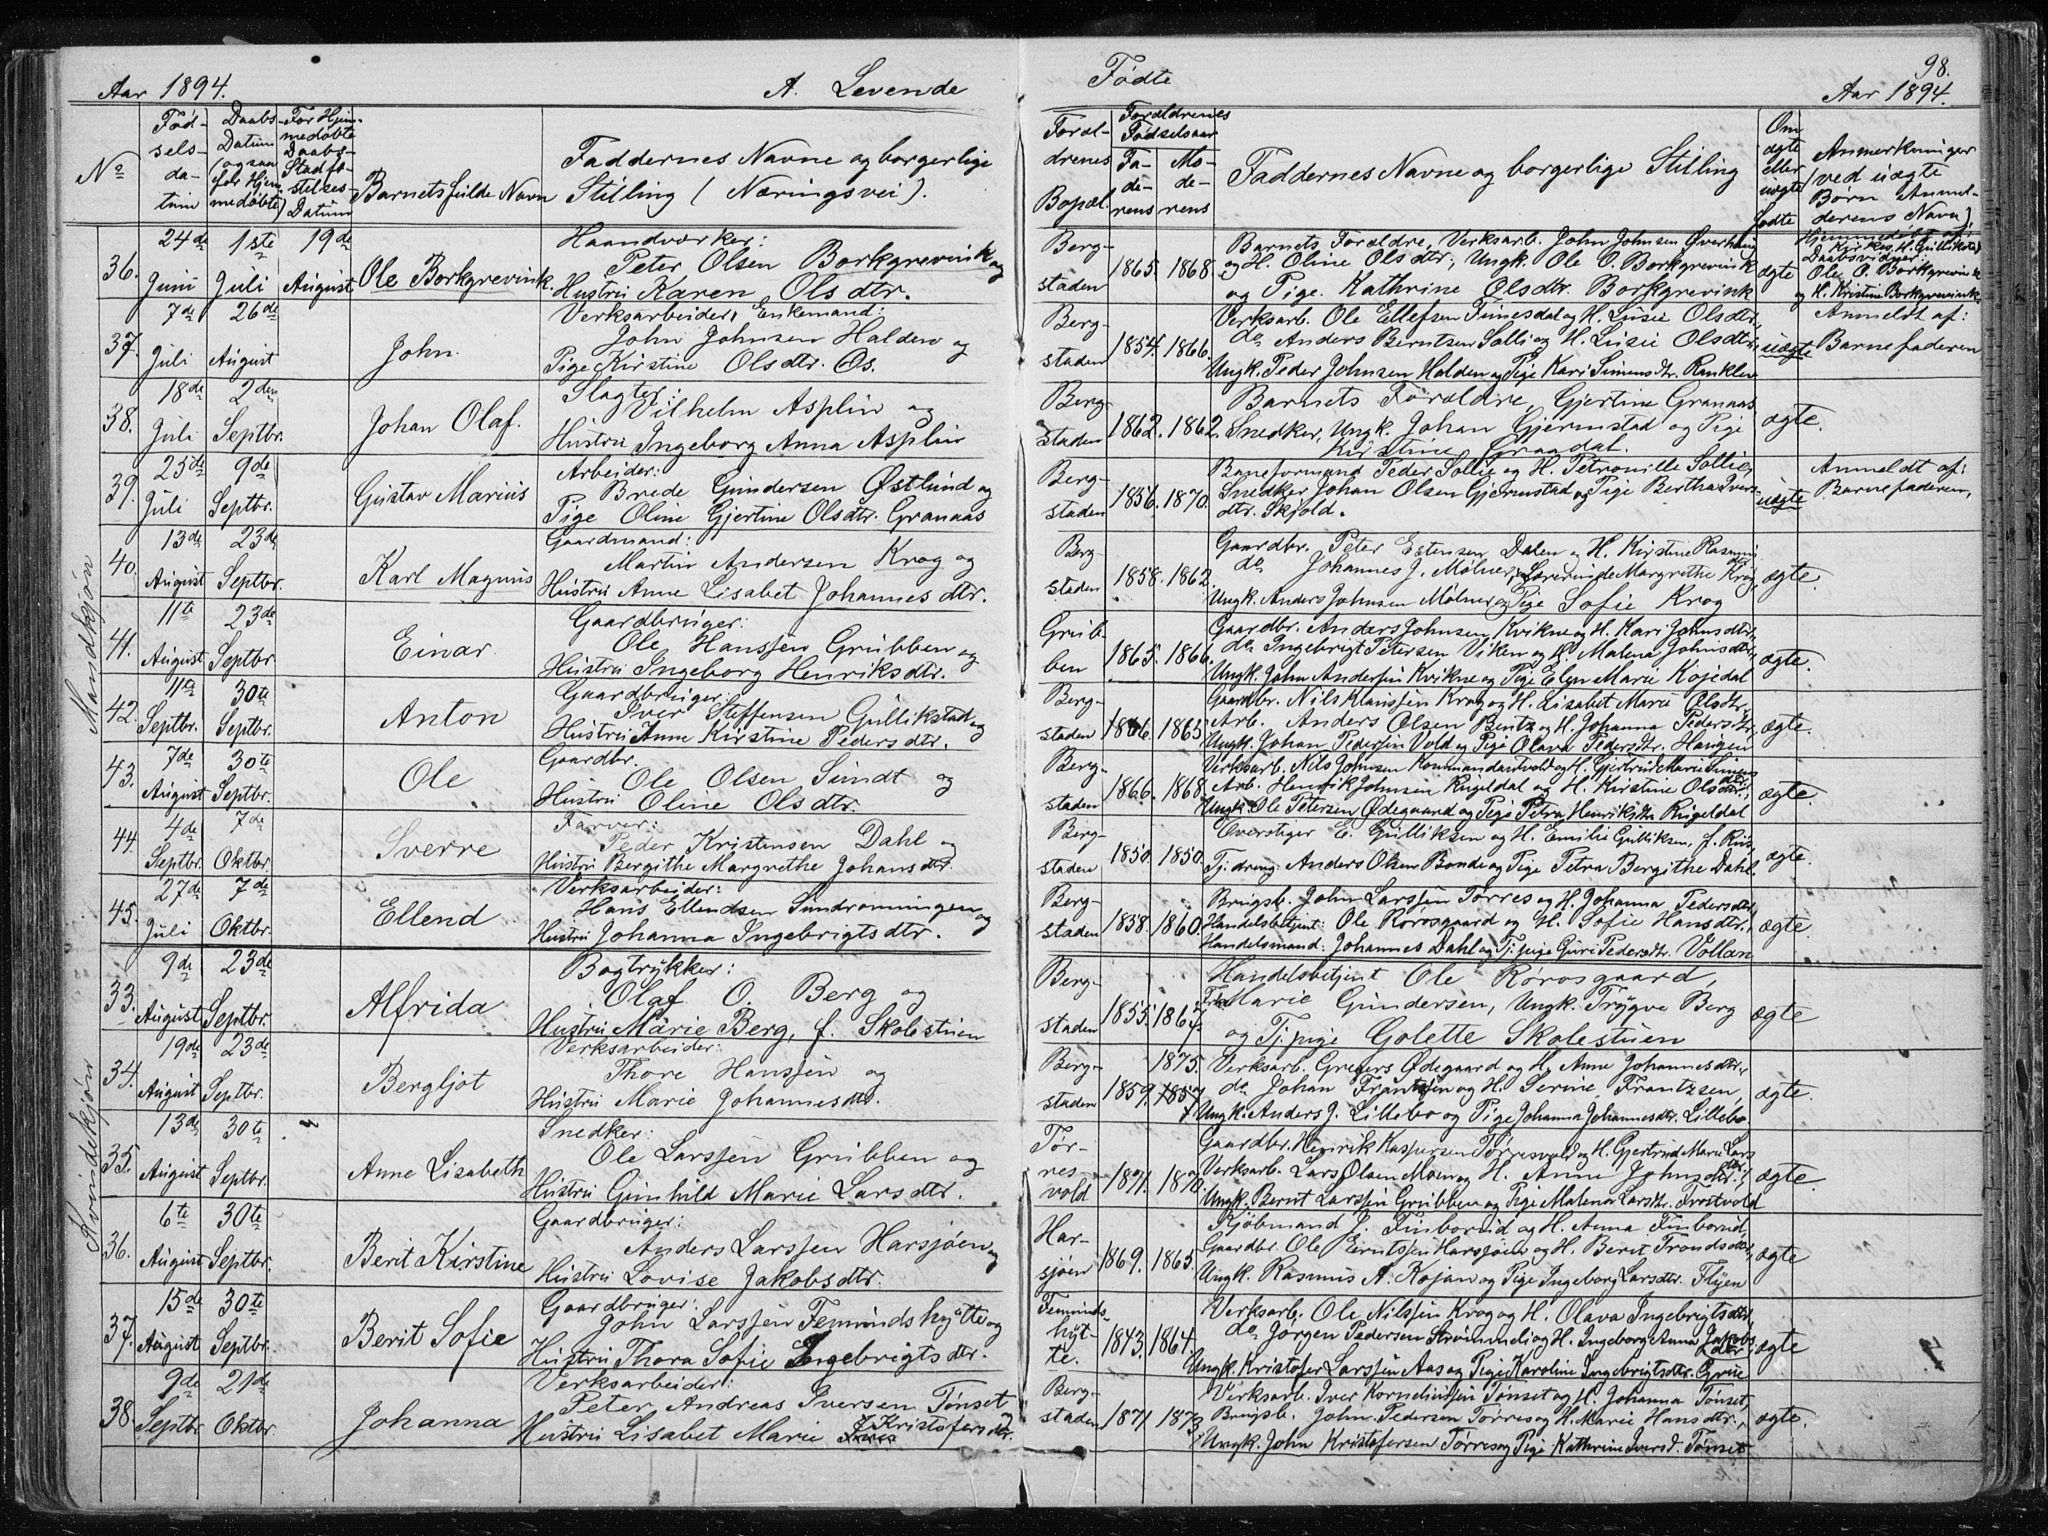 98.
Aar 1894. A. Levende Fødte Aar 1894.
No Fødselsdatum Daabs-Datum (ogsaa for Hjemmedøbte) For Hjemmedøbte Daabs-Stadfæstelses-Datum Barnets fulde Navn Faddernes Navne og borgerlige Stilling (Næringsvei). Forældrenes Bopæl. Forældrenes Fødselsaar Faderens Moderens Faddernes Navne og borgerlige Stilling Om ægte eller uægte fødte Anmerkninger (ved uægte Børn Anmelderens Navn)
Mandkjøn
36. 24de Juni 1ste Juli 19de August Ole Borkgrevink.
Haandværker:
Peter Olsen Borkgrevink og
Hustru Karen Olsdtr.
Bergstaden 1865. 1868.
Barnets Forældre, Verksarb. John Johnsen Øverhaug
og H. Oline Olsdtr., Ungk. Ole O. Borkgrevink
og Pige. Kathrine Olsdtr. Borkgrevink
ægte
Hjemmedøbt af:
Kirkes. H. Gullikstad
Daabsvidner:
Ole O. Borkgrevink
og H. Kristine Borkgrevink
37. 7de Juli 26de August John.
Verksarbeider, Enkemand:
John Johnsen Halden og
Pige Kirstine Olsdtr. Os.
Bergstaden 1854. 1866.
Verksarb. Ole Ellefsen Funesdal og H. Lusie Olsdtr.,
do Anders Berntsen Solli og H. Lusie Olsdtr.,
Ungk. Peder Johnsen Halden og Pige Kari Simensdtr. Ranklev
uægte
Anmeldt af:
Barnefaderen
38. 18de Juli 2den Septbr. Johan Olaf.
Slagter:
Vilhelm Asplin og
Hustru Ingeborg Anna Asplin
Bergstaden 1862. 1862.
Barnets Forældre, Gjertine Granaas
Snedker, Ungk. Johan Gjermstad og Pige
Kirstine Graadal.
ægte.
39. 25de Juli 9de Septbr. Gustav Marius
Arbeider:
Brede Gundersen Østlund og
Pige Oline Gjertine Olsdtr. Granaas
Bergstaden 1856. 1870.
Baneformand Peder Sollie og H. Petronille Sollie,
Snedker Johan Olsen Gjermstad og Pige Bertha Iversdtr. Skjold.
uægte
Anmeldt af:
Barnefaderen,
40. 13de August 23de Septbr. Karl Magnus
Gaardmand:
Martin Andersen Krog og
Hustru Anne Lisabet Johannesdtr.
Bergstaden 1858. 1862.
Gaardbr. Peter Estensen Dalen og H. Kirstine Rasmus
do Johannes J. Mølner, Lærerinde Margrethe Krog,
Ungk. Anders Johnsen Mølner og Pige Sofie Krog
ægte.
41. 11te August 23de Septbr. Einar.
Gaardbruger:
Ole Hanssen Grubben og
Hustru Ingeborg Henriksdtr.
Grubben 1865. 1866.
Gaardbr. Anders Johnsen Kvikne og H. Kari Johnsdtr.,
do Ingebrigt Petersen Viken og H. Malena Johnsdtr.,
Ungk. John Anderssen Kvikne og Pige Elen Marie Kojedal
ægte.
42. 11te Septbr. 30te Septbr. Anton
Gaardbruger:
Iver Steffensen Gullikstad og
Hustru Anne Kirstine Pedersdtr.
Bergstaden 1866. 1863.
Gaardbr. Nils Hanssen Krog og H. Lisabet Marie Olsdtr.,
Arb. Anders Olsen Bentz og H. Johanna Pedersdtr.,
Ungk. Johan Pederssen Vold og Pige Olava Pedersdtr. Haugen
ægte.
43. 7de August 30te Septbr. Ole
Gaardbr.
Ole Olsen Sundt og
Hustru Oline Olsdtr.
Bergstaden 1866. 1868.
Verksarb. Nils Johnsen Kommandantvold og H. Gjertrud Marie Simensdtr.
Arb. Henrik Johnsen Rugeldal og H. Kirstine Olsdtr.,
Ungk. Ole Petersen Ødegaard og Pige Petra Henriksdtr. Rugeldal
ægte.
44. 4de Septbr. 7de Oktbr. Sverre
Farver:
Peder Kristensen Dahl og
Hustru Bergithe Margrethe Johansdtr.
Bergstaden 1850. 1850.
Overstiger E. Gulliksen og H. Emilie Gulliksen, f. Riis,
Tj. dreng. Anders Olsen Bonde og Pige Petra Bergithe Dahl.
ægte.
45. 27de Juli 7de Oktbr. Ellend
Verksarbeider:
Hans Ellendsen Sundrønningen og
Hustru Johanna Ingebrigtsdtr.
Bergstaden 1858. 1860.
Brugsb. John Larssen Tørres og H. Johanna Pedersdtr.,
Handelsbetjent: Ole Rørosgaard og H. Sofie Hansdtr.,
Handelsmand: Johannes Dahl og Tj. pige Guri Pedersdtr. Vollan
ægte.
Kvindekjøn
33. 9de August 23de Septbr. Alfrida
Bogtrykker:
Olaf O. Berg og
Hustru Marie Berg, f. Skolestuen
Bergstaden 1855. 1867
Handelsbetjent Ole Rørosgaard,
Frk. Marie Gundersen, Ungk. Trygve Berg
og Tj. pige Golette Skolestuen
ægte
34. 19de August 23de Septbr. Bergljot
Verksarbeider:
Thore Hanssen og
Hustru Marie Johannesdtr.
Bergstaden 1859. 1875. 1857
Verksarb. Grefers Ødegaard og H. Anne Johannesdtr.,
do Johan Frantzen og H. Serine Frantzen,
Ungk. Anders J. Lillebo og Pige Johanna Johannesdtr. Lillebo.
ægte.
35. 13de August 30te Septbr. Anne Lisabeth
Snedker:
Ole Larssen Grubben og
Hustru Gunhild Marie Larsdtr.
Tørresvold 1871. 1870.
Gaardbr. Henrik Kaspersen Tørresvold og H. Gjertrud Marie Larsdtr.
Verksarb. Lars Olsen Moen og H. Anne Johnsdtr.,
Ungk. Bernt Larssen Grubben og Pige Malena Larsdtr. Trostvold
ægte.
36. 6te August 30te Septbr. Berit Kirstine
Gaardbruger:
Anders Larssen Harsjøen og
Hustru Lovise Jakobsdtr.
Harsjøen 1869. 1863.
Kjøbmand J. Finborud og H. Anna Finborud,
Gaardbr. Ole Berntssen Harsjøen og H. Berit Trondsdtr.,
Ungk. Rasmus A. Kojan og Pige Ingeborg Larsdtr. Flyen
ægte
37. 15de August 30te Septbr. Berit Sofie
Gaardbruger:
John Larssen Femundshytte og
Hustru Thora Sofie Ingebrigtsdtr.
Femundshytte. 1843. 1864.
Verksarb. Ole Nilssen Krog og H. Olava Ingebrigtsdtr.,
do Jørgen Pedersen Strømmeli og H. Ingeborg Anna Jakobsdtr.
Ungk. Kristofer Larssen Aas og Pige Karoline Ingebrigtsdtr. Grue
ægte
38 9de Septbr. 21de Oktbr. Johanna
Verksarbeider:
Peter Andreas Iversen Tønset
Hustru Lisabet Marie Kristofersdtr.
Bergstaden 1871 1873
Verksarb. Iver Korneliussen Tønset og H. Johanna Tønset,
Brugsb. John Pedersen Tørres og H. Marie Hansdtr.,
Ungk. John Kristofersen Tørres og Pige Kathrine Iversd. Tønset
ægte.